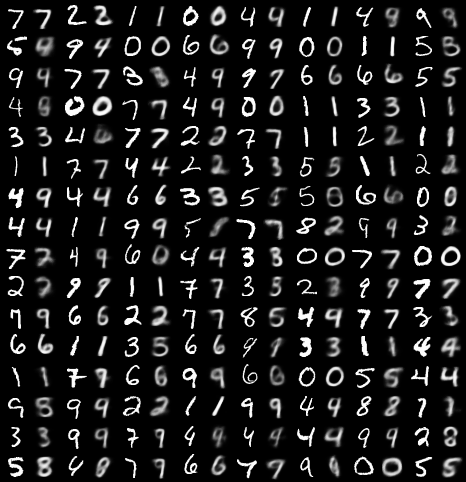 7 7 2 2 1 1 0 0 4 4 1 1 4 9 9 9
5 9 9 9 0 0 6 6 9 9 0 0 1 1 5 5
9 9 7 7 3 8 4 9 9 7 6 6 6 6 5 5
4 8 0 0 7 7 4 9 0 0 1 1 3 3 1 1
3 3 4 6 7 7 2 2 7 7 1 1 2 2 1 1
1 1 7 7 4 4 2 2 3 3 5 5 1 1 2 2
4 9 4 4 6 6 3 3 5 5 5 8 6 6 0 0
4 4 1 1 9 9 5 7 7 8 2 9 9 3 2
7 2 4 9 6 0 4 4 3 3 0 0 7 7 0 0
2 2 9 9 1 1 7 7 3 3 2 3 9 9 7 7
7 9 6 6 2 2 7 7 8 5 4 9 7 7 3 3
6 6 1 1 3 5 6 6 9 9 3 3 1 1 4 4
1 1 7 9 6 6 9 9 6 6 0 0 5 5 4 4
9 5 9 9 2 2 1 1 9 9 4 4 8 8 7 7
3 3 9 9 7 9 4 4 4 9 4 4 9 9 2 8
5 8 4 8 7 9 6 6 7 7 9 8 0 0 5 5